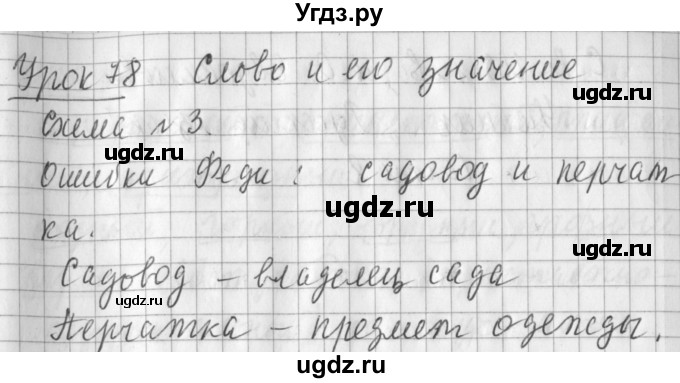 Угдз.ру
Урок 78 Слово и его значение
Схема № 3.
Ошибки Феди: садовод и перчат-
ка.
Садовод – владелец сада
Перчатка – предмет одежды.
ugdz.ru
ugdz.ru
ugdz.ru
ugdz.ru
ugdz.ru
ugdz.ru
ugdz.ru
ugdz.ru